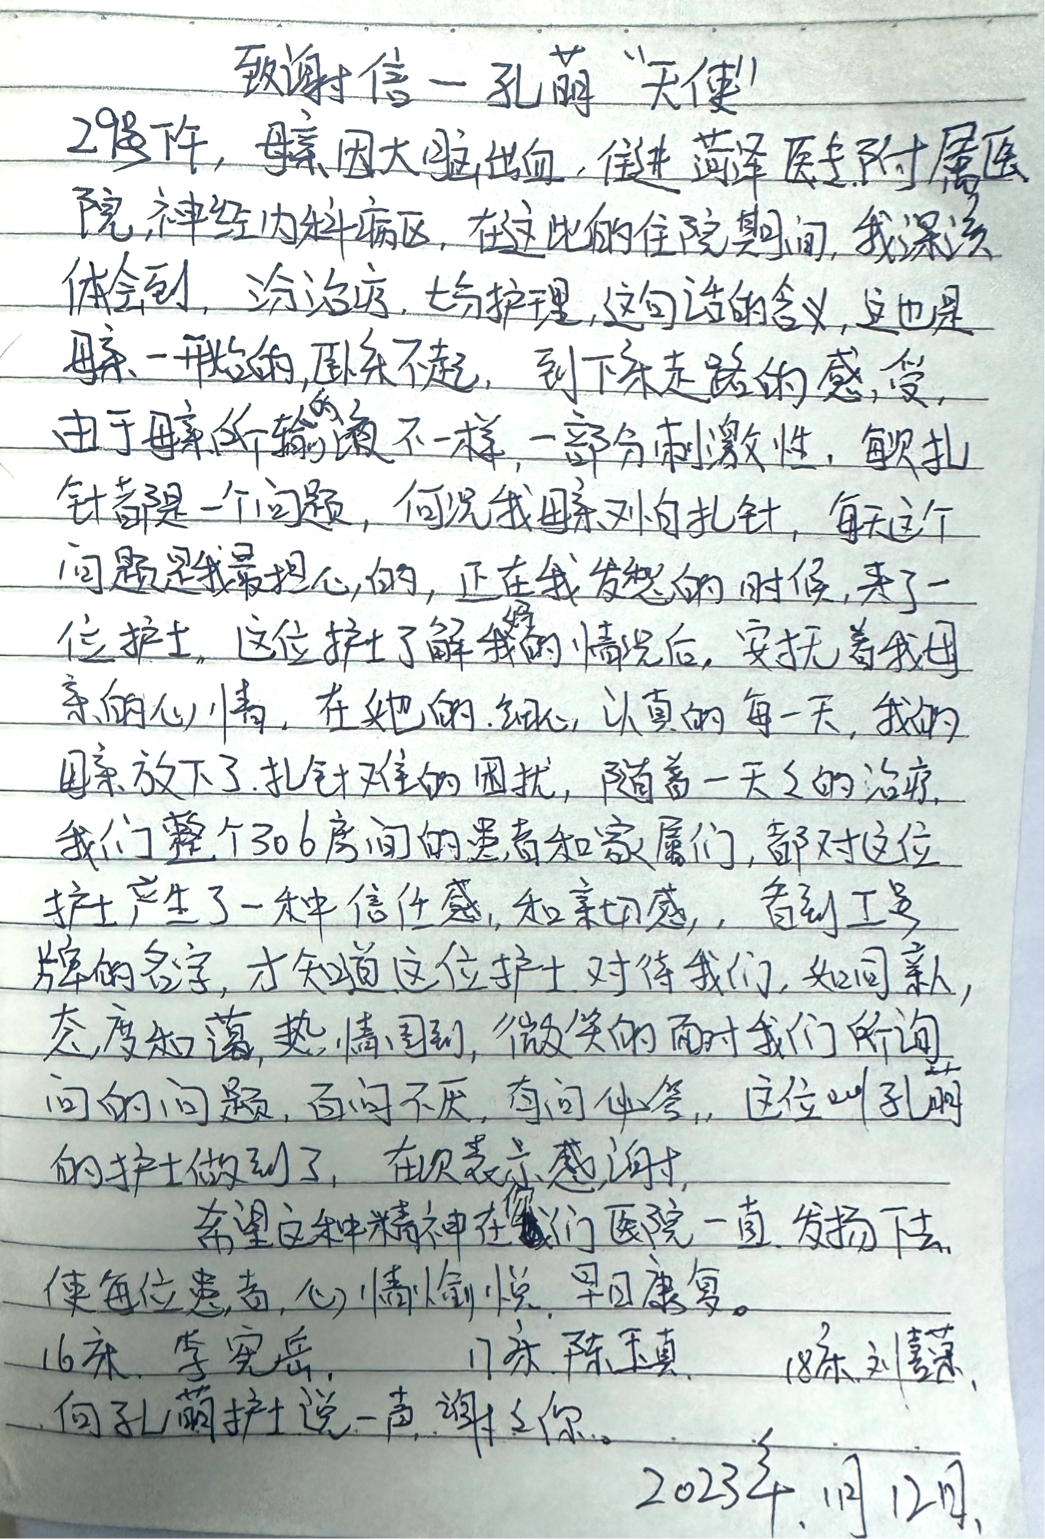 致谢信一孔萌“天使”
29号下午，母亲因大脑出血，住进菏泽医专附属医
院，神经内科病区，在这此的住院期间，我深深
体会到，三分治疗，七分护理，这句话的含义，这也是
母亲一开始的，卧床不起，到下床走路的感受，
由于母亲的每个输的液不一样，一部分刺激性，每次扎
针都是一个问题，何况我母亲对怕扎针，每天这个
问题是我最担心的，正在我发愁的时候，来了一
位护士，这位护士了解我妈的情况后，安抚着我母
亲的心情，在她的细心，认真的每一天，我的
母亲放下了扎针难的困扰，随着一天天的治疗，
我们整个306房间的患者和家属们，都对这位
护士产生了一种信任感，和亲切感，，看到工号
牌的名字，才知道这位护士对待我们，如同亲人，
态度和蔼，热情周到，微笑的面对我们所询
问的问题，百问不厌，有问必答，，这位叫孔萌
的护士做到了，在次表示感谢，
希望这种精神在你们医院一直发扬下去，
使每位患者，心情愉悦，早日康复。
16床 李宪岳， 17床 陈玉真 18床 刘喜，
向孔萌护士说一声，谢谢你。
2023年，11月12日，